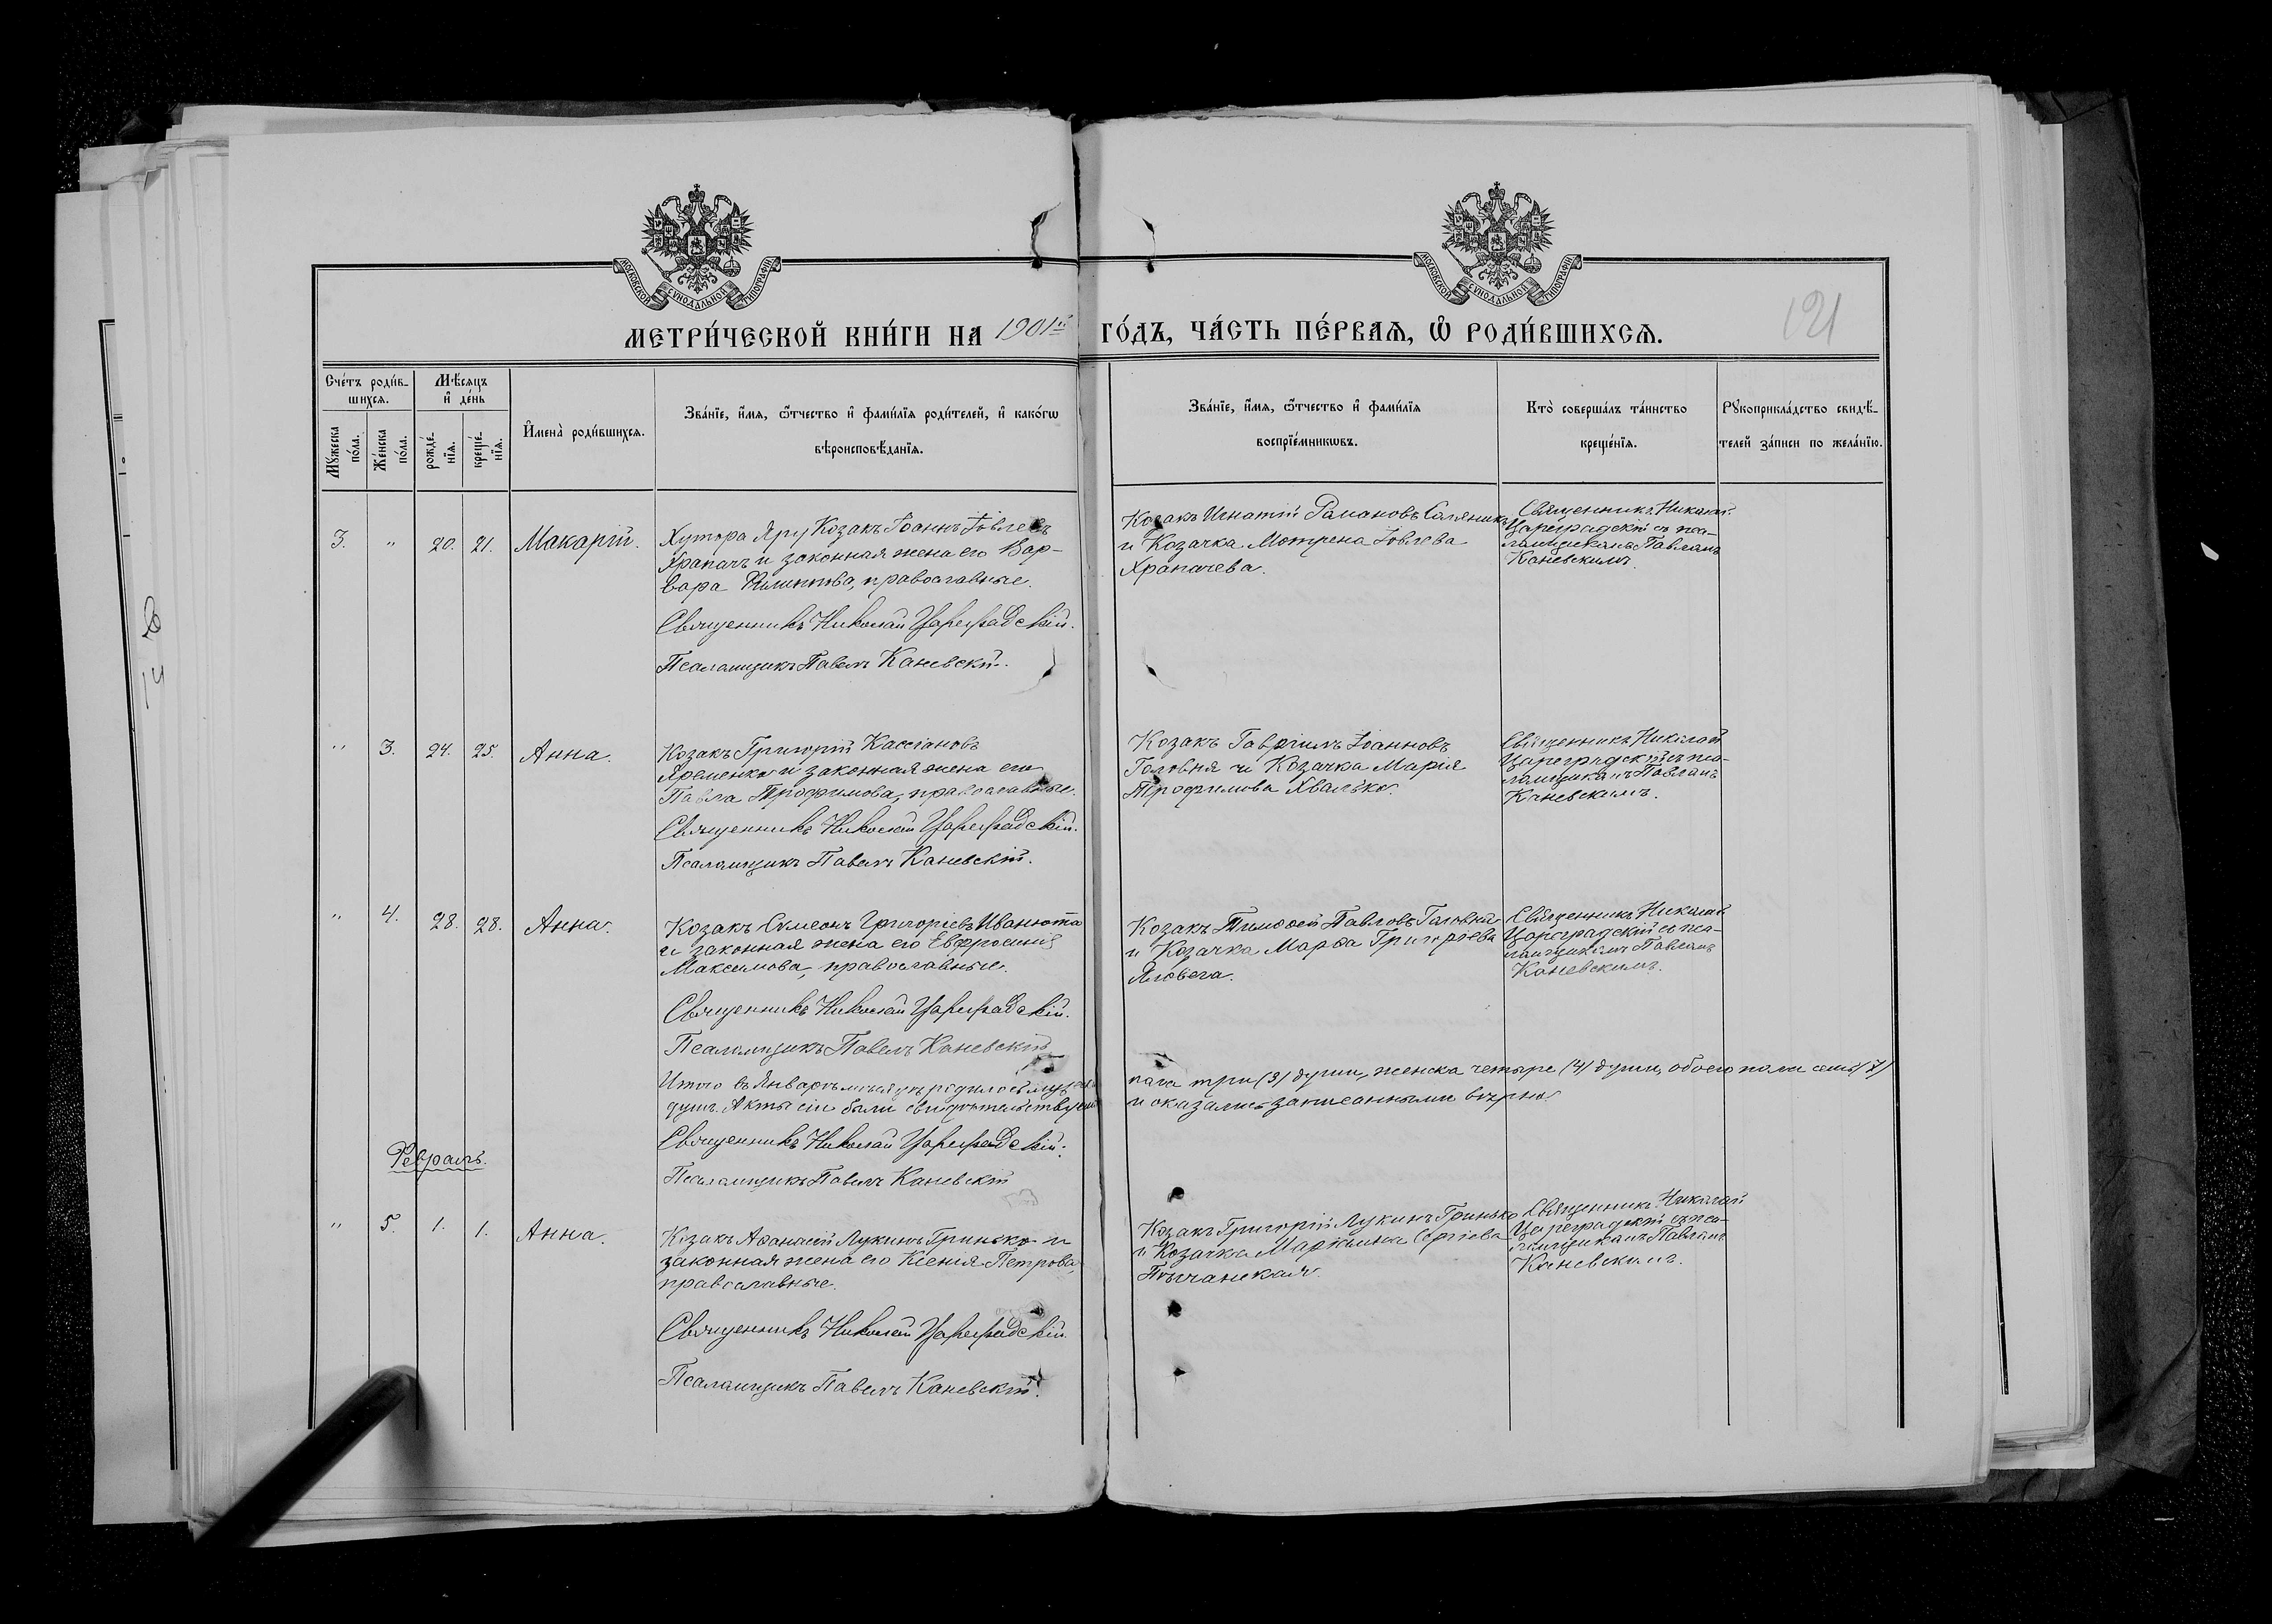 МОСКОВСКОЙ СѴНОДАЛЬНОЙ ТИПОГРАФІИ
МОСКОВСКОЙ СѴНОДАЛЬНОЙ ТИПОГРАФІИ
МЕТРИ́ЧЕСКОЙ КНИ́ГИ НА 1901й ГО́ДЪ, ЧА́СТЬ ПЕ́РВАѦ, Ѡ РОДИ́ВШИХСѦ.
121
Сче́тъ роди́в-
шихсѧ.
Мꙋ́жеска по́ла.
Же́нска по́ла.
Мѣ́сѧцъ
и де́нь
рожде́-
нїѧ.
креще́-
нїѧ.
Имена̀ роди́вшихсѧ.
Зва́нїе, и́мѧ, ѻ́тчество и фами́лїѧ роди́телей, и како́гѡ
вѣроисповѣ́данїѧ.
Зва́нїе, и́мѧ, ѻ́тчество и фами́лїѧ
воспрїе́мникѡвъ.
Кто̀ соверша́лъ та́инство
креще́нїѧ.
Рꙋкоприкла́дство свидѣ́-
телей за́писи по жела́нїю.
3. " 20. 21. Макарій.
Хутора Яру Козакъ Іоаннъ Іовлевъ
Храпачъ и законная жена его Вар-
вара Филиппова, православные.
Священникъ Николай Цареградскій.
Псаломщикъ Павелъ Каневскій.
Козакъ Игнатій Романовъ
и Козачка Мотрена Іовлева
Храпачева.
Священникъ Николай
Цареградскій съ пса-
ломщикомъ Павломъ
Каневскимъ.
" 3. 24. 25. Анна.
Козакъ Григорій Кассіановъ
Яременко и законная жена его
Павла Трофимова, православные.
Священникъ Николай Цареградскій.
Псаломщикъ Павелъ Каневскій.
Козакъ Гавріилъ Іоанновъ
Головня и Козачка Марія
Трофимова Хвалько.
Священникъ Николай
Цареградскій съ пса-
ломщикомъ Павломъ
Каневскимъ.
" 4. 28. 28. Анна.
Козакъ Симеонъ Григоріевъ Иванюта
и законная жена его Евфросинія
Максимова, православные.
Священникъ Николай Цареградскій.
Псаломщикъ Павелъ Каневскій
Козакъ Тимофей Павловъ Головня
и Козачка Марфа Григоріева
Священникъ Николай
Цареградскій съ пса-
ломщикомъ Павломъ
Каневскимъ.
Итого въ Январѣ мѣсяцѣ родилось мужеска пола три (3) души, женска четыре (4) души, обоего пола семь (7)
душъ. Акты сіи были свидѣтельствуемы и оказались записанными вѣрно.
Священникъ Николай Цареградскій.
Псаломщикъ Павелъ Каневскій
Февраль.
" 5. 1. 1. Анна.
Козакъ Аѳанасій Лукинъ Гринько и
законная жена его Ксенія Петрова,
православные.
Священникъ Николай Цареградскій.
Псаломщикъ Павелъ Каневскій.
Козакъ Григорій Лукинъ Гринько
и Козачка Маріамна Сергіева
Священникъ Николай
Цареградскій съ пса-
ломщикомъ Павломъ
Каневскимъ.